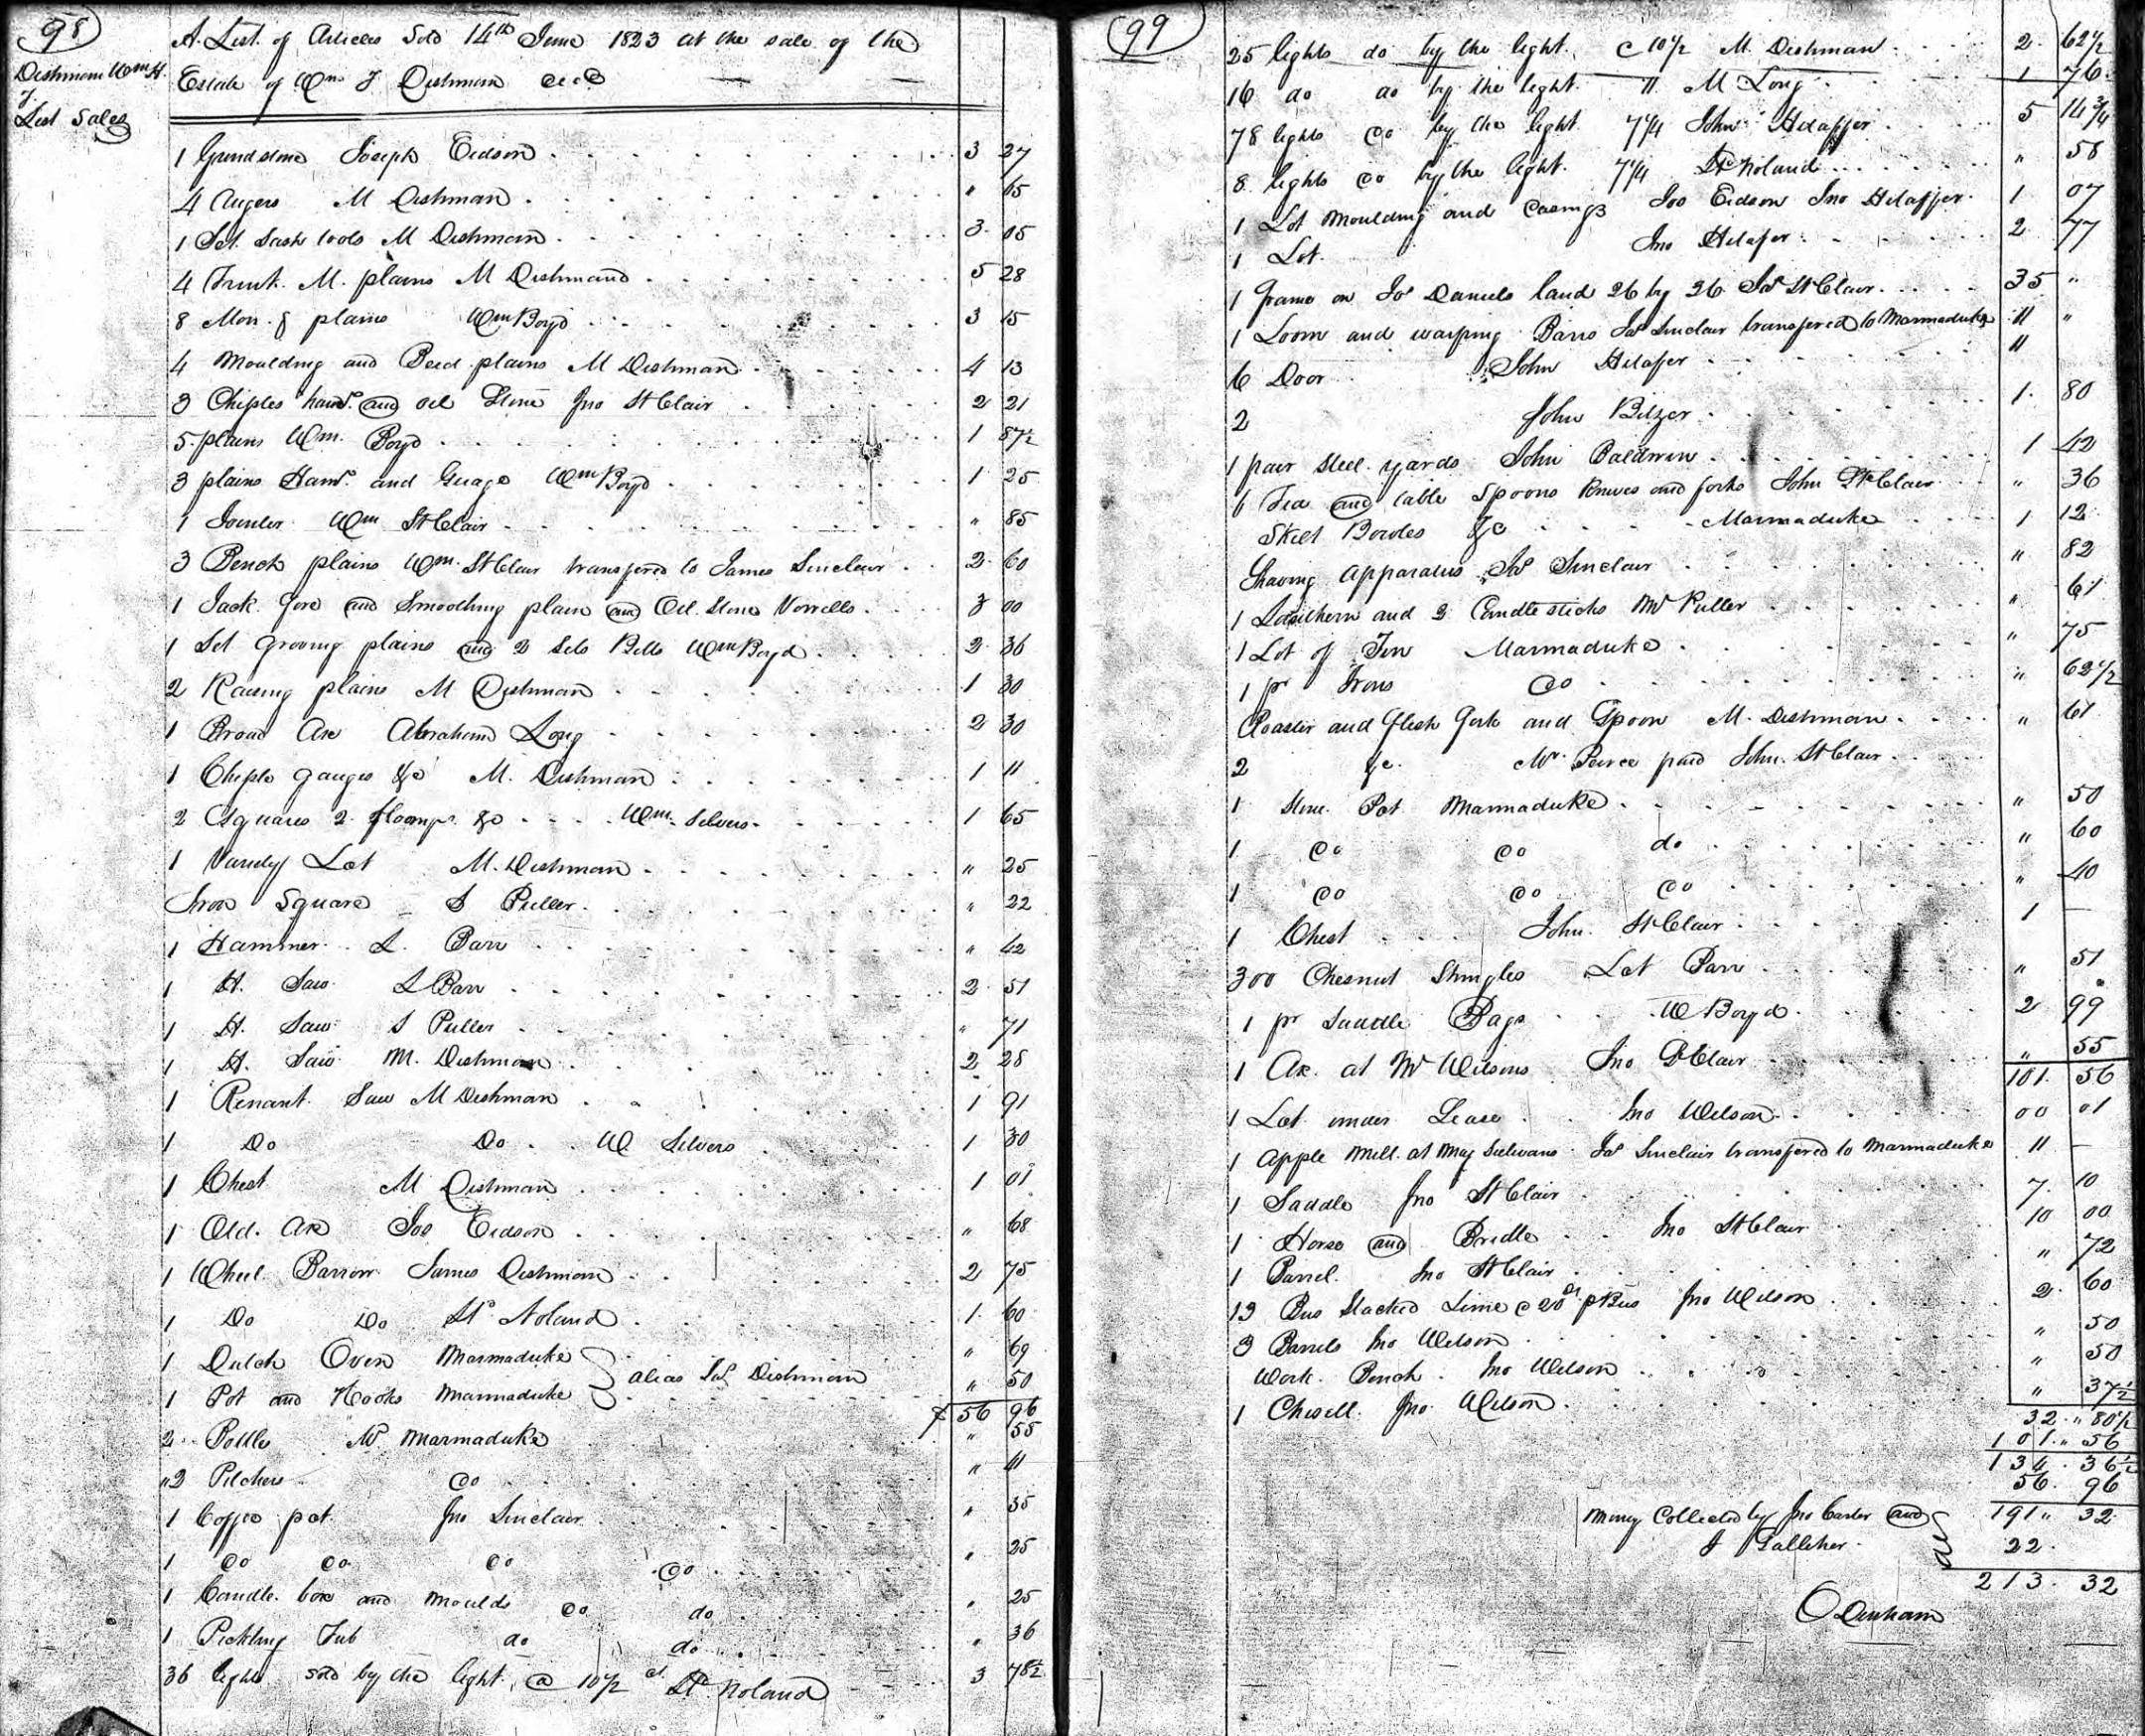 98
Dishman Wm H.
J.
List Sales
A List of Articles Sold 14th June 1823 at the sale of the
Estate of Wm J Dishman decd
1 Grindstone Joseph Eidson 3 27
4 Augers M Dishman " 65
1 Set Sash tools M Dishman 3 05
4 M. plains M Dishman 5 28
8 plains Wm Boyd 3 15
4 Moulding and Bead plains M Dishman 4 13
3 Chisles hamr. and oil Stone Jno St Clair 2 21
5 plains Wm. Boyd 1 87½
3 plains Hamr. and Guage Wm Boyd 1 25
1 Jointer Wm St Clair " 85
3 Bench plains Wm. St Clair transfered to James Sinclair 2 60
1 Jack fore and Smoothing plain and Oil Stone Vorrells 3 00
1 Set Groving plains and 2 Sets Bitts Wm Boyd 2 36
2 Raising plains M Dishman 1 30
1 Broad Axe Abraham Long 2 30
1 Chisle Gauges &c M. Dishman 1 11
2 Squares 2 &c Wm. Silvers 1 65
1 Variety Lot M. Dishman " 25
Iron Square S Puller " 22
1 Hammer L. Barr " 42
1 H. Saw L Barr 2 51
1 H. Saw S Puller " 71
1 H. Saw M. Dishman 2 28
1 Tenant Saw M Dishman 1 91
1 Do Do W Silvers 1 30
1 Chest M Dishman 1 01
1 Old Axe Jos Eidson " 68
1 Wheel Barrow James Dishman 2 75
1 Do Do St. Noland 1 60
1 Dutch Oven Marmaduke " 69
alias Jas Dishman
1 Pot and Hooks Marmaduke " 50
56 96
2 Bottles Mr Marmaduke " 55
"2 Pitchers do " 41
1 Coffee pot Jno Sinclair " 35
1 do do do do " 25
1 Candle box and moulds do do " 25
1 Pickling Tub do do " 36
36 lights sold by the light @ 10½ ct St. Noland 3 78½
99
25 lights do by the light @ 10½ M. Dishman 2 62½
16 do do by the light 11 M Long 1 76
78 lights do by the light 7¼ John Hdaffer 5 14¾
8 lights do by the light 7¼ St Noland " 58
1 Lot Moulding and Casings Jos Eidson Jno Hdaffer 1 07
1 Lot Jno Hdaffer 2 77
1 frame on Jos Daniels land 26 by 26 Jas St Clair 35 "
1 Loom and warping Barrs Jas Sinclair transfered to Marmaduke 11 "
6 Door John Hdaffer 11
2 John Bitzer 1 80
1 pair Steel yards John Baldwin 1 42
6 Tea and table Spoons Knives and forks John St Clair " 36
Skeet Bowles &c Marmaduke 1 12
Shaving Apparatus Jas Sinclair " 82
1 and 2 Candlesticks Mr Puller " 61
1 Lot of Tin Marmaduke " 75
1 pr Irons do " 62½
Roaster and flesh fork and Spoon M. Dishman " 61
2 &c. Mr. Peirce paid John St Clair
1 Stone Pot Marmaduke " 50
1 do do do " 60
1 do do do " 40
1 Chest John St Clair 1 —
300 Chesnut Shingles Lot Barr " 51
1 pr Saddle Bags W Boyd 2 99
1 Axe at Mr Wilsons Jno St Clair " 55
101 56
1 Lot under Lease Jno Wilson 00 01
1 Apple Mill at Maj Sulivans Jas Sinclair transfered to Marmaduke 11 —
1 Saddle Jno St Clair 7 10
1 Horse and Bridle Jno St Clair 10 00
1 Barrel Jno St Clair " 72
13 Bus Slacked Lime @ 20 ct p Bus Jno Wilson 2 60
3 Barrels Jno Wilson " 50
Work Bench Jno Wilson " 50
1 Chisell Jno Wilson " 37½
32 " 80½
101 " 56
134 36½
56 96
191 " 32
Money Collected by Jno Carter and
J Galleher
22
213 32
O Denham